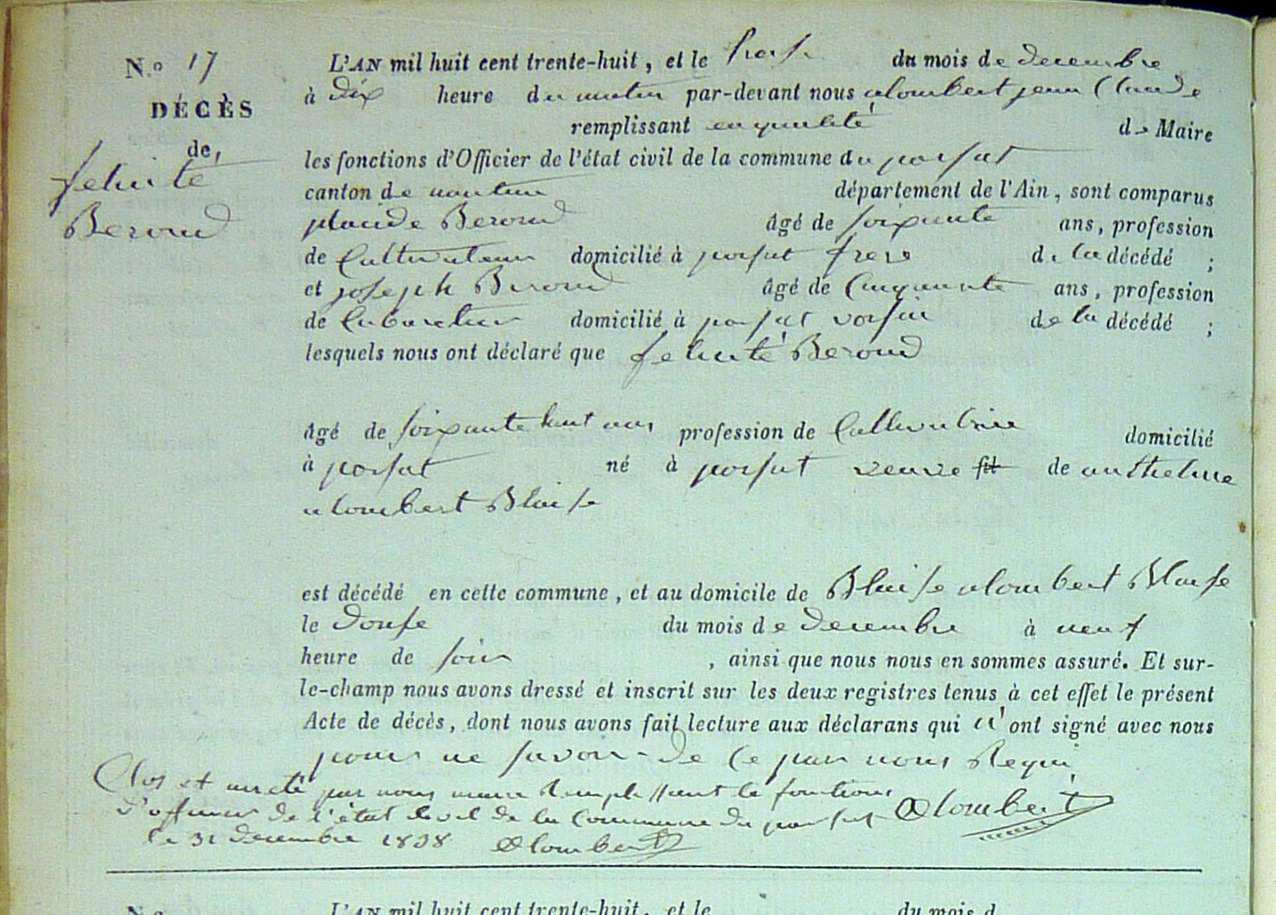 N.o 17
DÉCÈS
de
felicité
Beroud
L'AN mil huit cent trente-huit, et le treise du mois de decembre
à dix heure du matin par-devant nous alombert jean Claude
remplissant en qualité de Maire
les fonctions d'Officier de l'état civil de la commune du porsat
canton de nantua département de l'Ain, sont comparus
placide Beroud âgé de soixante ans, profession
de Cultivateur domicilié à porsat frere de la décédé ;
et joseph Beroud âgé de Cinquante ans, profession
de Cabaretier domicilié à porsat voisin de la décédé ;
lesquels nous ont déclaré que felicité Beroud
âgé de soixante huit ans profession de Cultivatrice domicilié
à porsat né à porsat veuve fil de anthelme
alombert Blaise
est décédé en cette commune, et au domicile de Blaise alombert Blaise
le douse du mois de decembre à neuf
heure de soir, ainsi que nous nous en sommes assuré. Et sur-
le-champ nous avons dressé et inscrit sur les deux registres tenus à cet effet le présent
Acte de décès, dont nous avons fait lecture aux déclarans qui n'ont signé avec nous
pour ne savoir de Ce par nous Requi
Clos et arreté par nous maire Remplissant le fonctions
d'officier de l'état Civil de la Commune du porsat Alombert
le 31 decembre 1838 Alombert
N.o L'AN mil huit cent trente-huit, et le du mois d